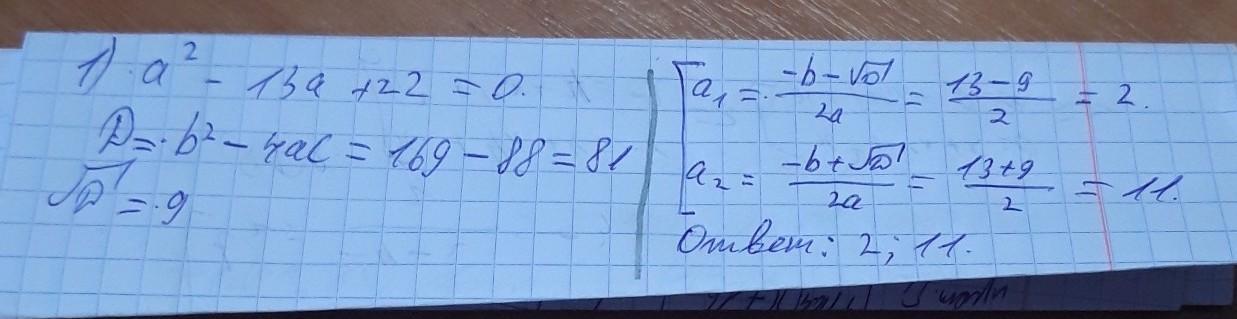 1) a² - 13a + 22 = 0.
D = b² - 4ac = 169 - 88 = 81
√D = 9
a₁ = (-b - √D)/2a = (13 - 9)/2 = 2.
a₂ = (-b + √D)/2a = (13 + 9)/2 = 11.
Ответ: 2; 11.